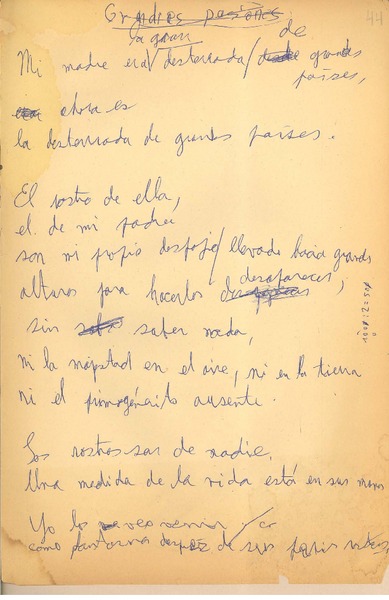 Grandes pasiones
44
a gran de
Mi madre era / desterrada / desde grandes
países,
ahora es
la desterrada de grandes países.
El rostro de ella,
el de mi padre
son mi propio despojo / llevado hacia grandes
alturas para hacerlos desaparecer,
sin saber nada,
ni la majestad en el aire, ni en la tierra
ni el primogénito ausente.
Los rostros son de nadie,
Una medida de la vida está en sus manos
Yo los veo venir
como fantasma después de sus